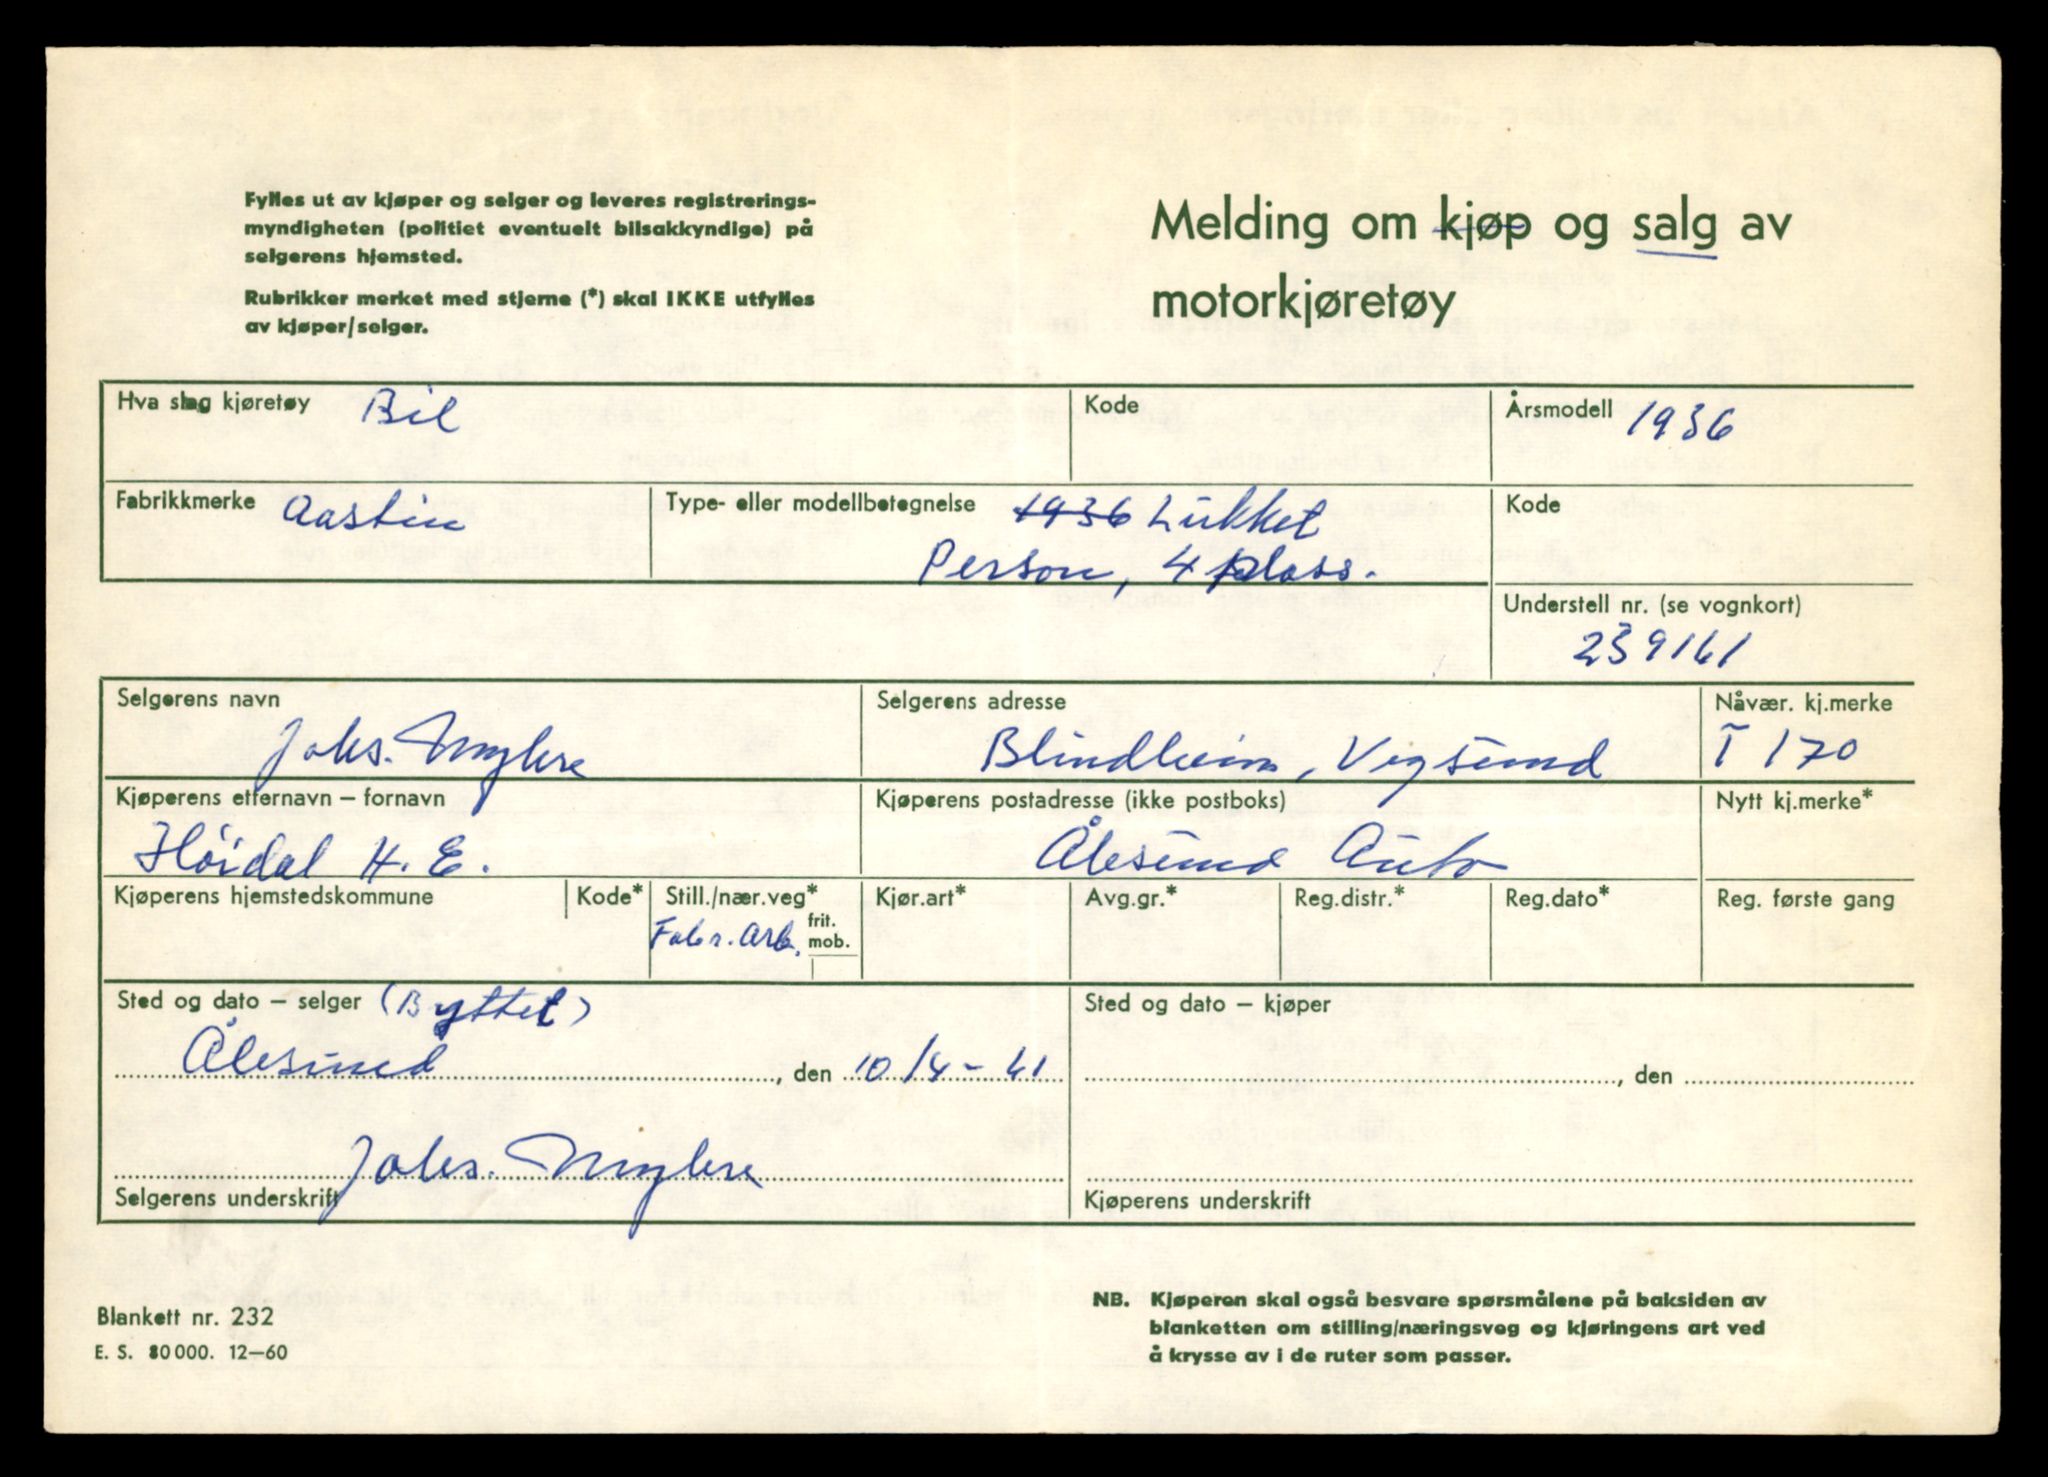 Fylles ut av kjøper og selger og leveres registrerings-
myndigheten (politiet eventuelt bilsakkyndige) på
selgerens hjemsted.
Rubrikker merket med stjerne (*) skal IKKE utfylles
av kjøper/selger.
Melding om kjøp og salg av
motorkjøretøy
Hva slag kjøretøy Bil
Kode
Årsmodell 1936
Fabrikkmerke Austin
Type- eller modellbetegnelse 1936 Lukket
Person, 4 plass.
Kode
Understell nr. (se vognkort)
239161
Selgerens navn
Johs. Myhre
Selgerens adresse
Blindheim, Vegsund
Nåvær. kj.merke
T 170
Kjøperens etternavn – fornavn
Høidal H. E.
Kjøperens postadresse (ikke postboks)
Ålesund Auto
Nytt kj.merke*
Kjøperens hjemstedskommune
Kode*
Still./nær.veg*
Fabr. Arb.
frit.
mob.
Kjør.art*
Avg.gr.*
Reg.distr.*
Reg.dato*
Reg. første gang
Sted og dato – selger (Byttet)
Ålesund, den 10/4-61
Selgerens underskrift Johs. Myhre
Sted og dato – kjøper
, den
Kjøperens underskrift
Blankett nr. 232
E. S. 80 000. 12–60
NB. Kjøperen skal også besvare spørsmålene på baksiden av
blanketten om stilling/næringsveg og kjøringens art ved
å krysse av i de ruter som passer.